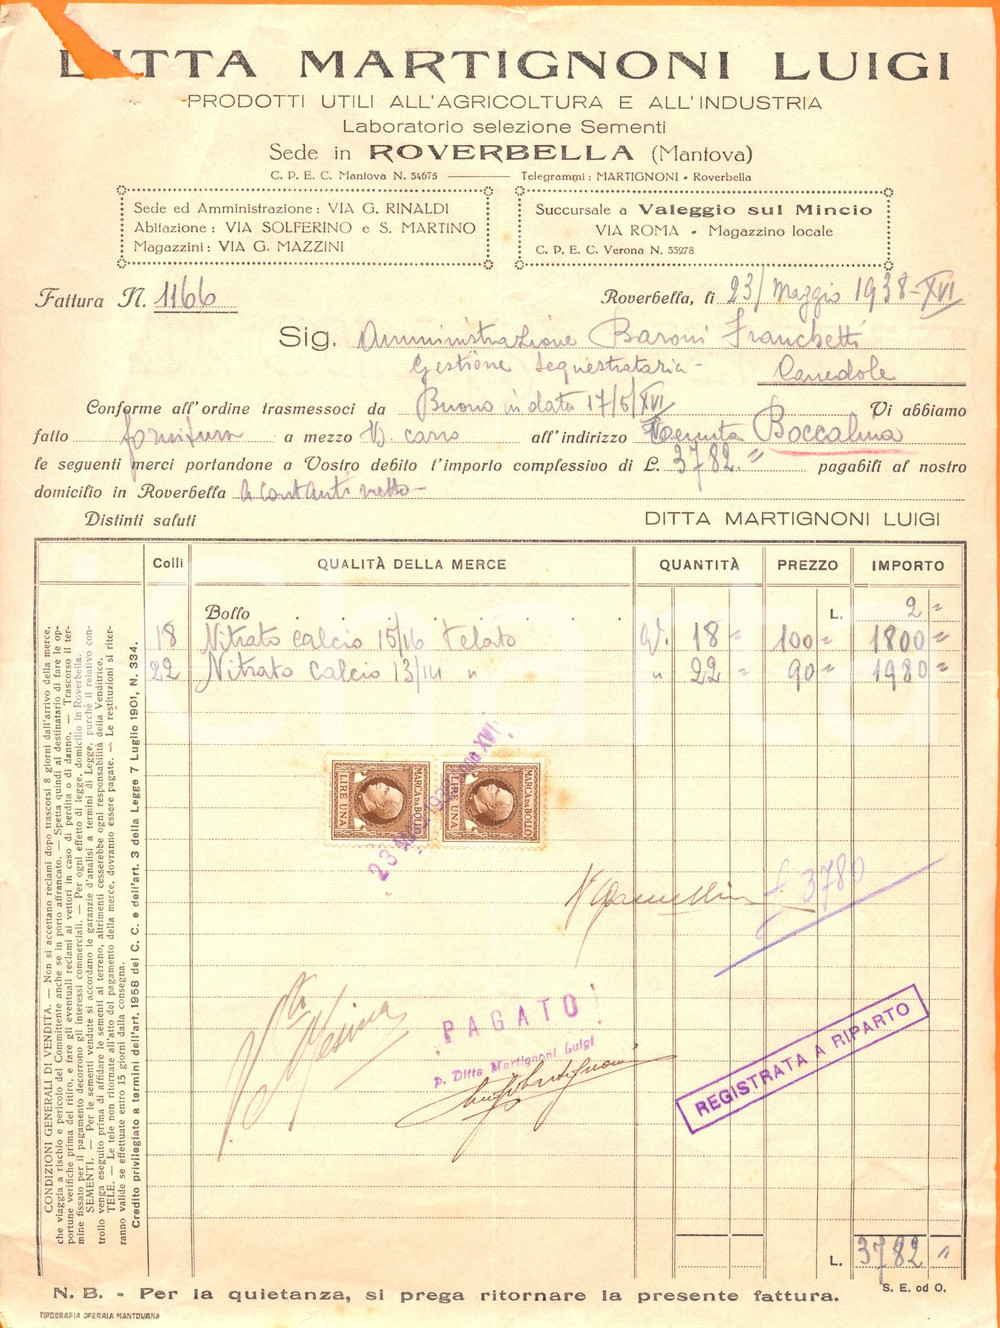 DITTA MARTIGNONI LUIGI
PRODOTTI UTILI ALL'AGRICOLTURA E ALL'INDUSTRIA
Laboratorio selezione Sementi
Sede in ROVERBELLA (Mantova)
C. P. E. C. Mantova N. 54675 Telegrammi: MARTIGNONI - Roverbella
Sede ed Amministrazione: VIA G. RINALDI
Abitazione: VIA SOLFERINO e S. MARTINO
Magazzini: VIA G. MAZZINI
Succursale a Valeggio sul Mincio
VIA ROMA - Magazzino locale
C. P. E. C. Verona N. 53278
Fattura N. 1166
Roverbella, lì 23/ Maggio 1938-XVI
Sig. Amministrazione Baroni Franchetti
Gestione Sequestrataria -
Canedole
Conforme all'ordine trasmessoci da Buono in data 17/5/XVI Vi abbiamo
fatto fornitura a mezzo V. carro all'indirizzo Tenuta Boccalina
le seguenti merci portandone a Vostro debito l'importo complessivo di L. 3782.- pagabili al nostro
domicilio in Roverbella a contanti netto -
Distinti saluti DITTA MARTIGNONI LUIGI
Colli QUALITÀ DELLA MERCE QUANTITÀ PREZZO IMPORTO
Bollo L. 2 "
18 Nitrato calcio 15/16 telato Ql. 18 " 100 " 1800 "
22 Nitrato calcio 13/14 " " 22 " 90 " 1980 "
MARCA DA BOLLO
LIRE UNA
MARCA DA BOLLO
LIRE UNA
£ 3780
PAGATO!
p. Ditta Martignoni Luigi
REGISTRATA A RIPARTO
L. 3782 "
CONDIZIONI GENERALI DI VENDITA. — Non si accettano reclami dopo trascorsi 8 giorni dall'arrivo della merce,
che viaggia a rischio e pericolo del Committente anche se in porto affrancato. — Spetta quindi al destinatario di fare le op-
portune verifiche prima del ritiro, e fare gli eventuali reclami ai vettori in caso di perdita o di danno. — Trascorso il ter-
mine fissato per il pagamento decorrono gli interessi commerciali. — Per ogni effetto di legge, domicilio in Roverbella.
SEMENTI. — Per le sementi vendute si accordano le garanzie d'analisi a termini di Legge, purchè il relativo con-
trollo venga eseguito prima di affidare le sementi al terreno, altrimenti cesserebbe ogni responsabilità della Venditrice.
TELE. — Le tele non ritornate all'atto del pagamento della merce, dovranno essere pagate. — Le restituzioni si riter-
ranno valide se effettuate entro 15 giorni dalla consegna.
Credito privilegiato a termini dell'art. 1958 del C. C. e dell'art. 3 della Legge 7 Luglio 1901, N. 334.
S. E. od O.
N. B. - Per la quietanza, si prega ritornare la presente fattura.
TIPOGRAFIA OPERAIA MANTOVANA